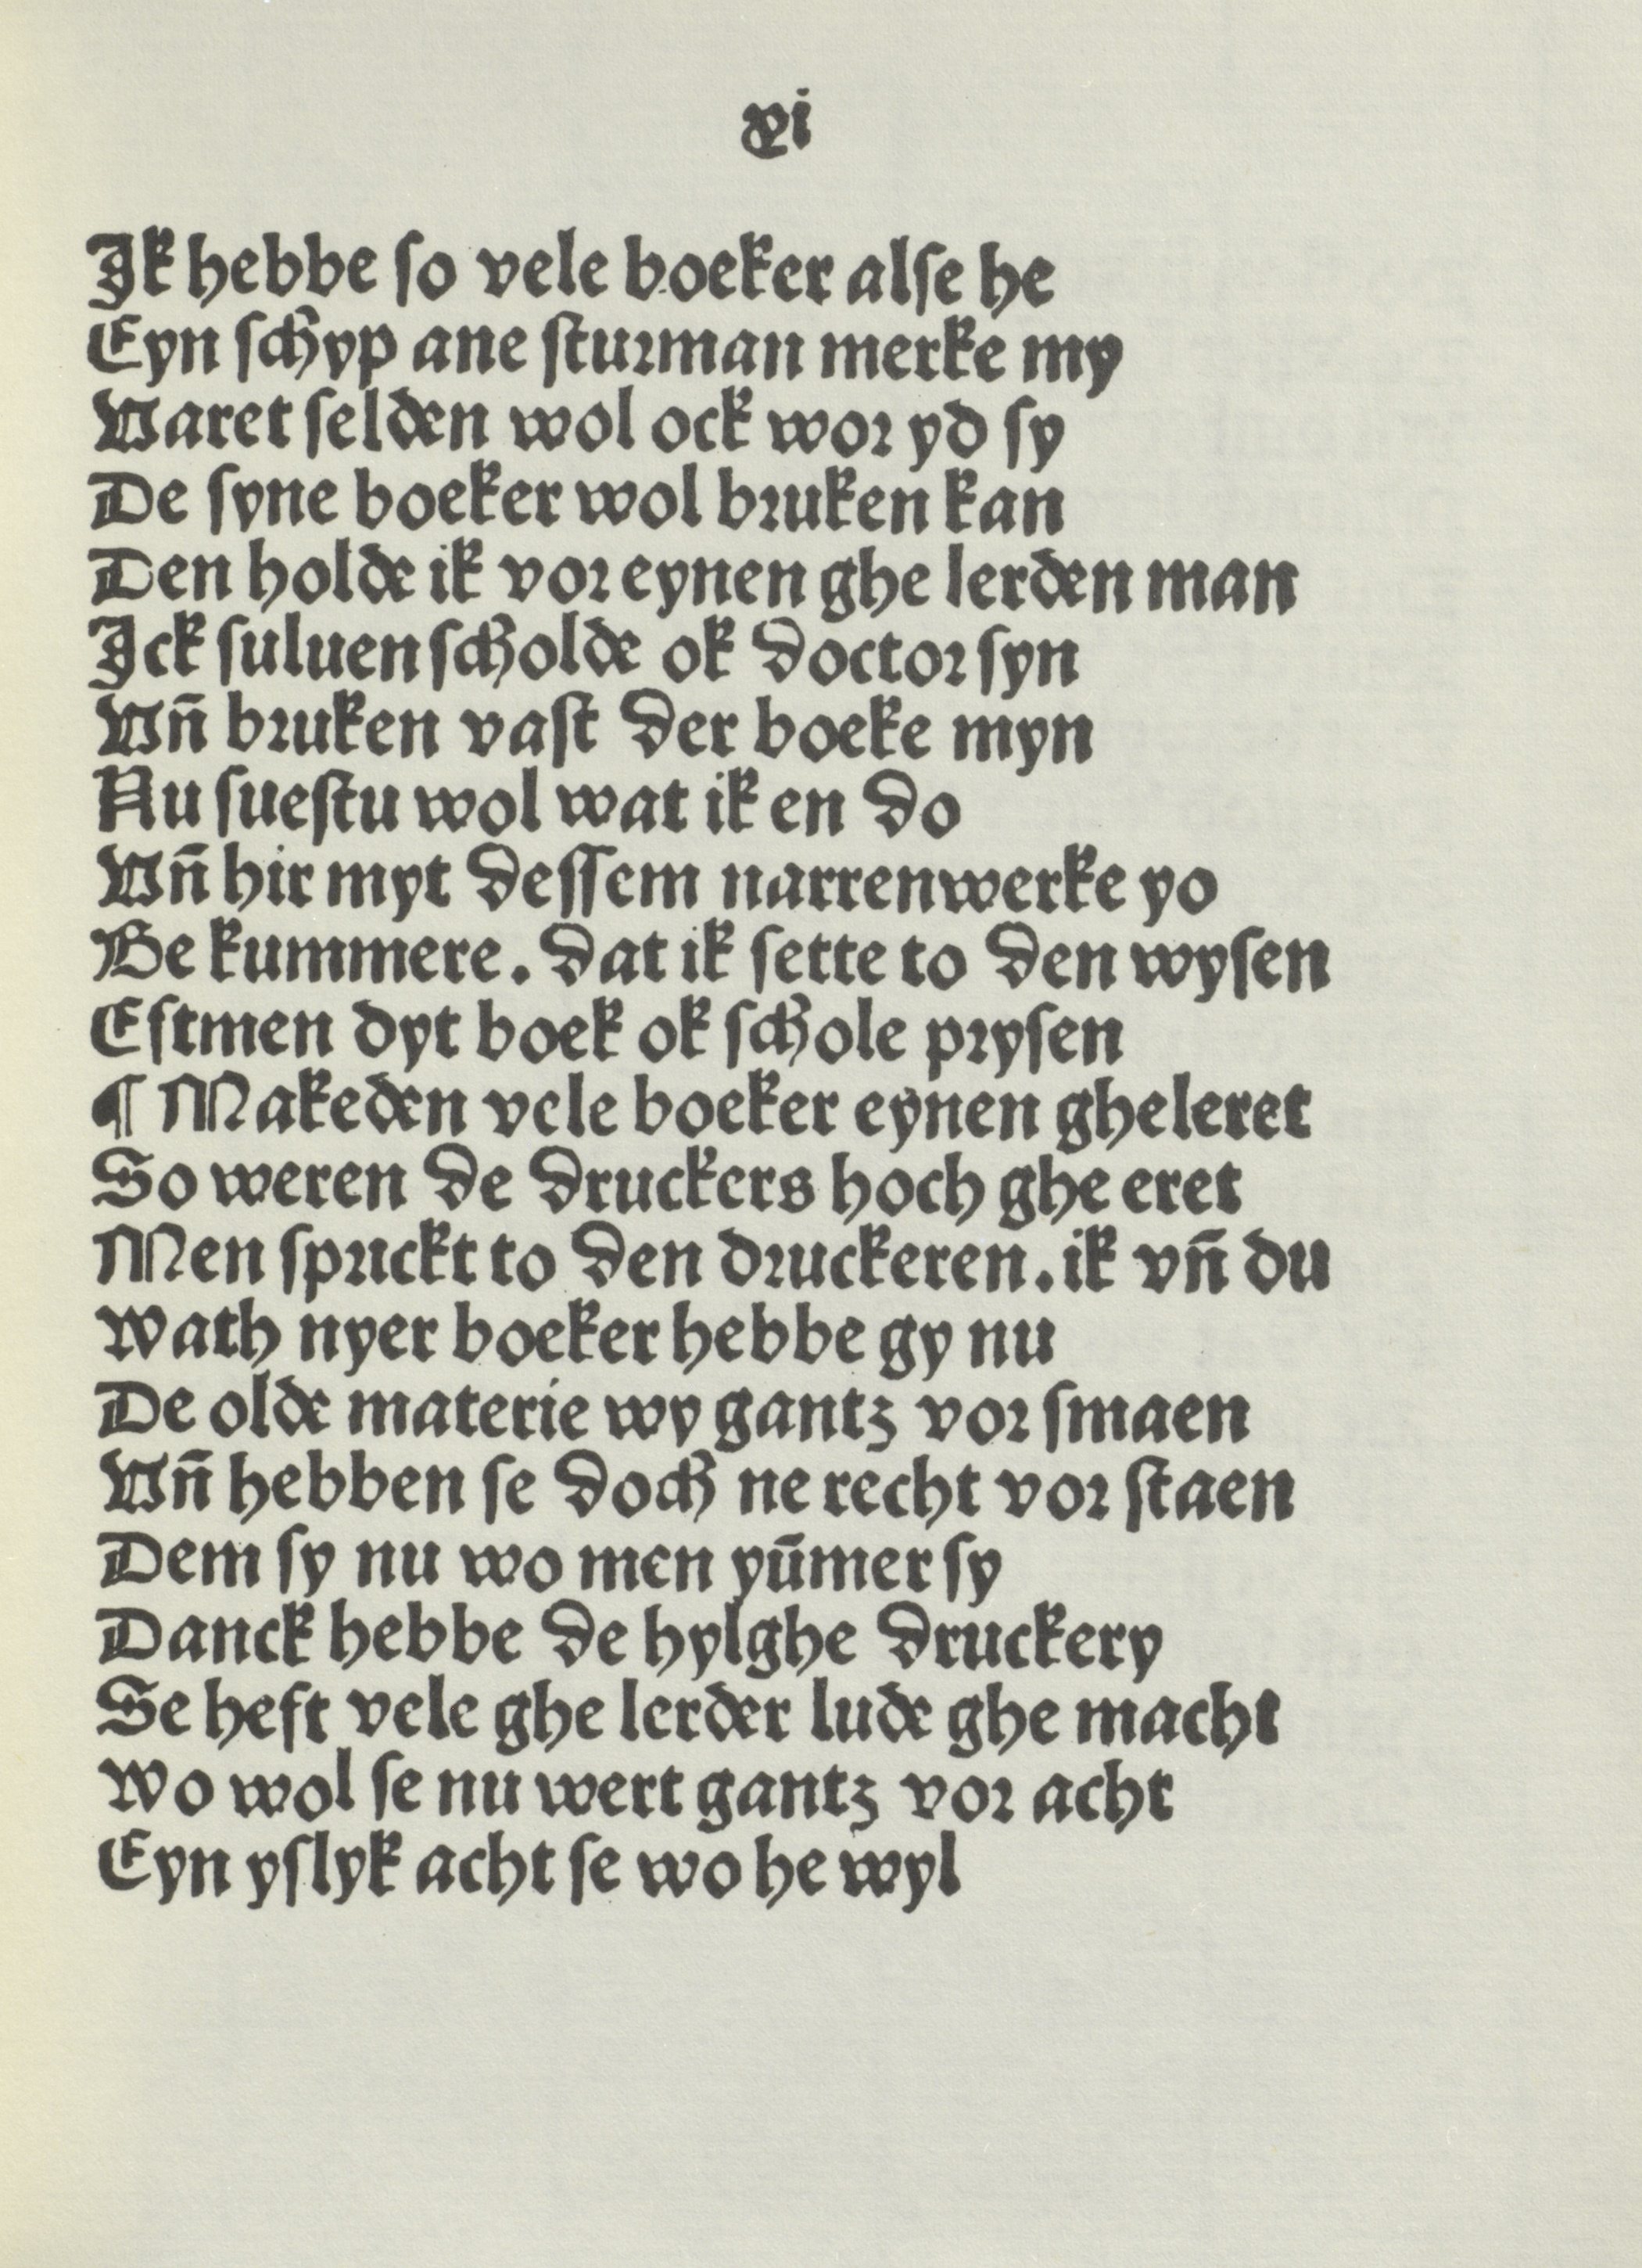 xi
Ik hebbe ſo vele boeker alſe he
Eyn ſchyp ane ſturman merke my
Varet ſelden wol ock wor yd ſy
De ſyne boeker wol bruken kan
Den holde ik vor eynen ghe lerden man
Ick ſuluen ſcholde ok doctor ſyn
Vn̄ bruken vaſt der boeke myn
Nu ſueſtu wol wat ik en do
Vn̄ hir myt deſſem narrenwerke yo
Be kummere. dat ik ſette to den wyſen
Eſtmen dyt boek ok ſchole pryſen
¶ Makeden vele boeker eynen gheleret
So weren de druckers hoch ghe eret
Men sprickt to den druckeren. ik vn̄ du
Wath nyer boeker hebbe gy nu
De olde materie wy gantz vor ſmaen
Vn̄ hebben ſe doch ne recht vor ſtaen
Dem ſy nu wo men yūmer ſy
Danck hebbe de hylghe druckery
Se heft vele ghe lerder lude ghe macht
Wo wol ſe nu wert gantz vor acht
Eyn yſlyk acht ſe wo he wyl